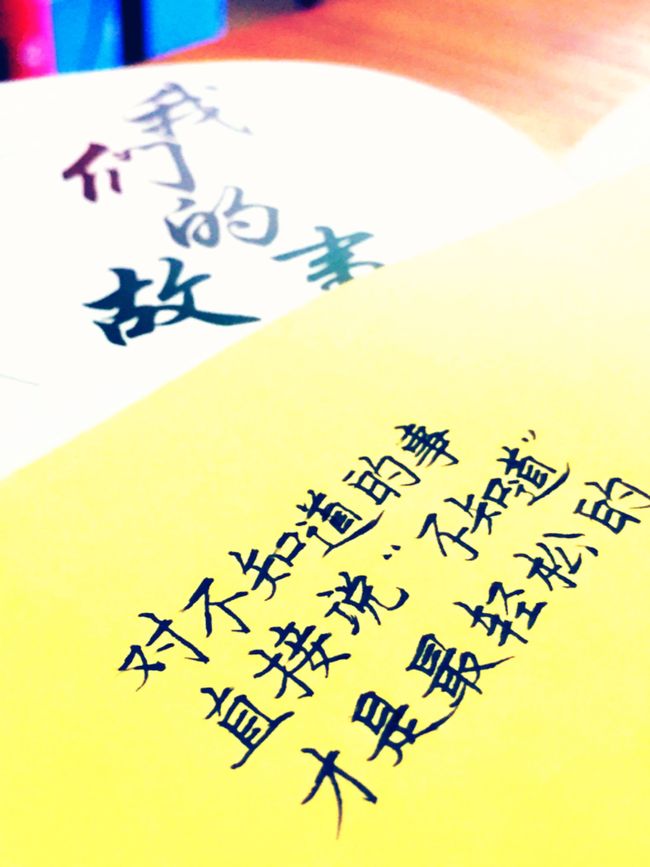 我们的
故事
对不知道的事
直接说“不知道”
才是最轻松的